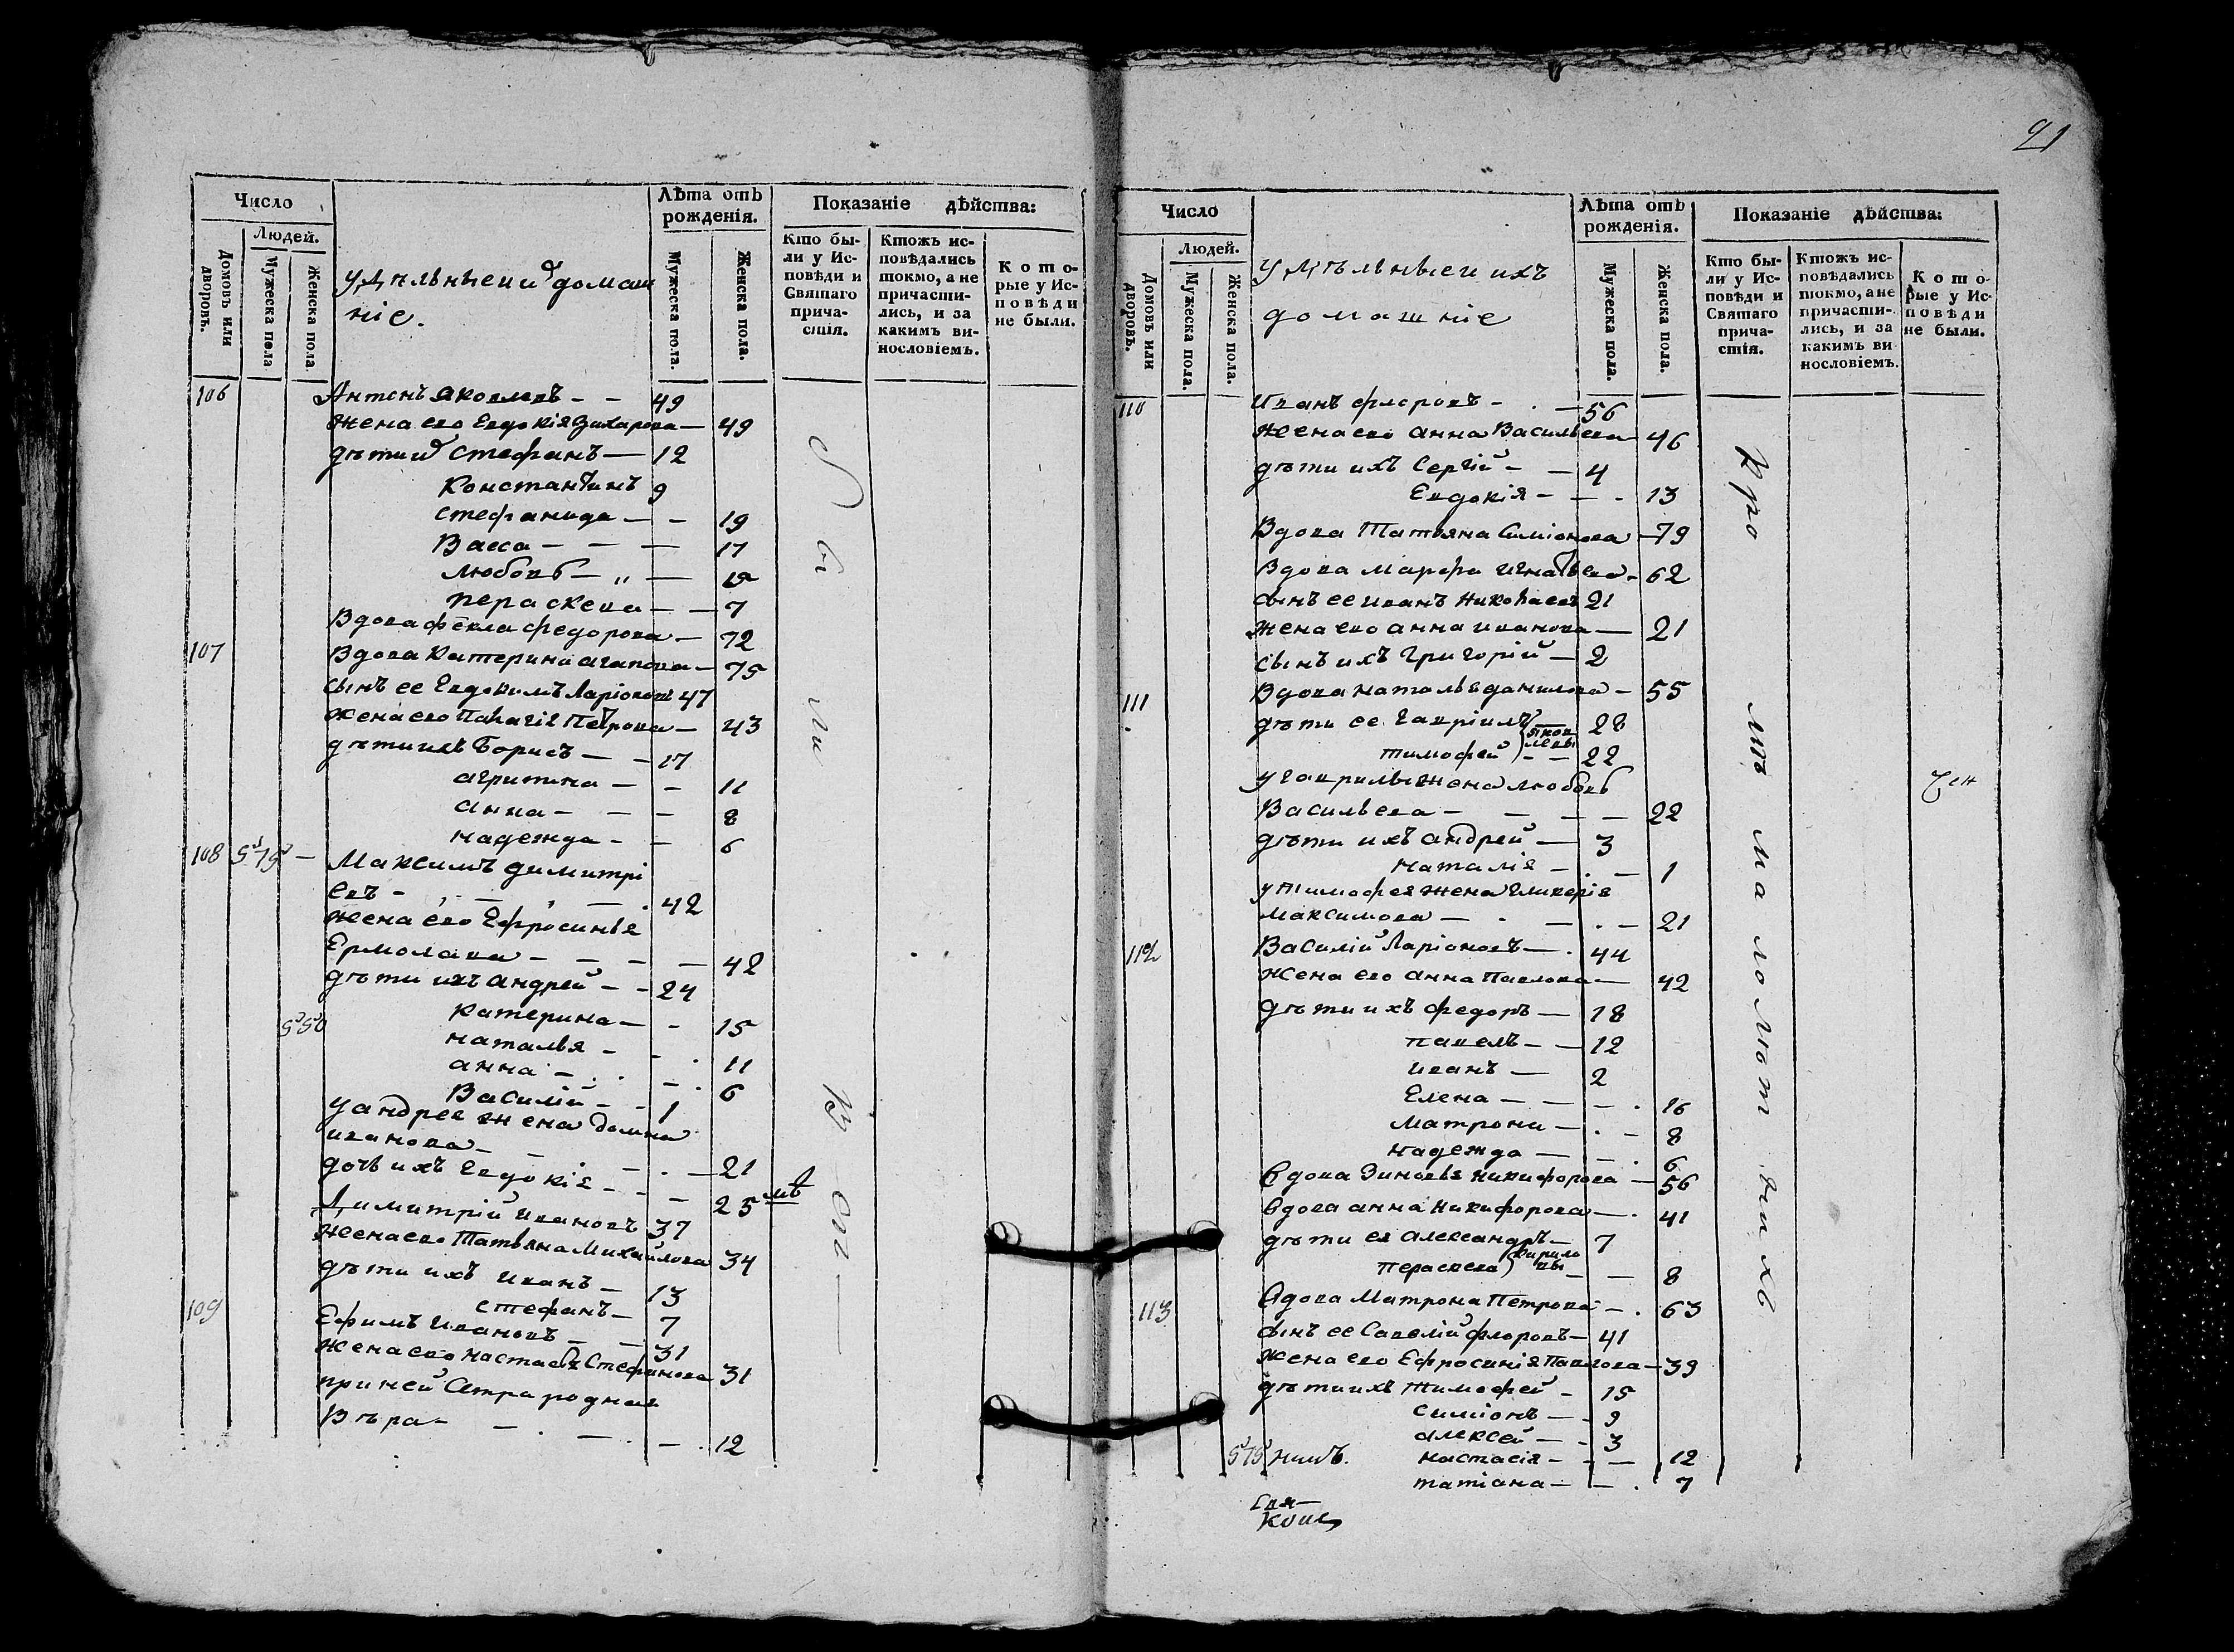 Число
Людей.
Домовъ или дворовъ.
Мужеска пола
Женска пола
Удѣльные и домаш
ніе.
Лѣта отъ рожденія.
Мужеска пола.
Женска пола.
Показаніе дѣйства:
Кто были у Исповѣди и Святаго причастія.
Ктожъ исповѣдались токмо, а не причастились, и за какимъ винословіемъ.
Которые у Исповѣди не были.
106 Антонъ Яковлевъ - - 49
Жена его Евдокія Захарова — 49
дѣти Стефанъ — 12
Константинъ 9
Стефанида — - 19
Васса - — — 17
Любовь — „ —
Пераскева — — 7
Вдова Фекла Федорова — 72
107 Вдова Катерина Агапова — 75
сынъ ее Евдокимъ Ларіоновъ 47
Жена его Палагія Петрова — 43
дѣти ихъ Борисъ — - 17
Агрипина — - 11
Анна — — — 8
Надежда - — 6
108 Максимъ Димитрі
евъ - 42
Жена его Ефросинья
Ермолаева - — — — 42
дѣти ихъ Андрей - - 24
Катерина — - 15
Наталья - - 11
Анна - 6
Василій - - 1
У Андрея жена Домна
Иванова - 21
дочь ихъ Евдокія - - — 25
Димитрій Ивановъ 37
Жена его Татьяна Михайлова 34
дѣти ихъ Иванъ - 13
Стефанъ - 7
109 Ефимъ Ивановъ - - 31
Жена его Настасья Стефанова 31
при ней Сестра родная
Вѣра - 12
21
Число
Людей.
Домовъ или дворовъ.
Мужеска пола.
Женска пола.
Удѣльные и ихъ
домашніе
Лѣта отъ рожденія.
Мужеска пола.
Женска пола.
Показаніе дѣйства:
Кто были у Исповѣди и Святаго причастія.
Ктожъ исповѣдались токмо, а не причастились, и за какимъ винословіемъ.
Которые у Исповѣди не были.
110 Иванъ Флоровъ - 56
Жена его Анна Васильева 46
дѣти ихъ Сергій - - 4
Евдокія - - - 13
Вдова Татьяна Симіонова - 79
Вдова Марфа Игнатьева - 62
сынъ ее Иванъ Николаевъ 21
Жена его Анна Иванова — 21
сынъ ихъ Григорій - 2
111 Вдова Наталья Данилова - 55
дѣти ее Гавріилъ 28
Яковлевы
Тимофей - - 22
У Гаврилы жена Любовь
Васильева - — — — 22
дѣти ихъ Андрей — 3
Наталія - — 1
У Тимофея жена Гликерія
Максимова — 21
112 Василій Ларіоновъ — 44
Жена его Анна Павлова — 42
дѣти ихъ Федоръ — 18
Павелъ - - 12
Иванъ — 2
Елена - - - 16
Матрона - - 8
Надежда — - 6
Вдова Зиновья Никифорова - 56
Вдова Анна Никифорова — 41
дѣти ея Александръ - 7
Кириловы
Пераскева - — 8
113 Вдова Матрона Петрова - 63
сынъ ее Савелій Флоровъ - 41
Жена его Ефросинія Павлова - 39
дѣти ихъ Тимофей - 15
Симіонъ - - 9
Алексей - - 3
Настасія - - — 12
Татіана - - 7